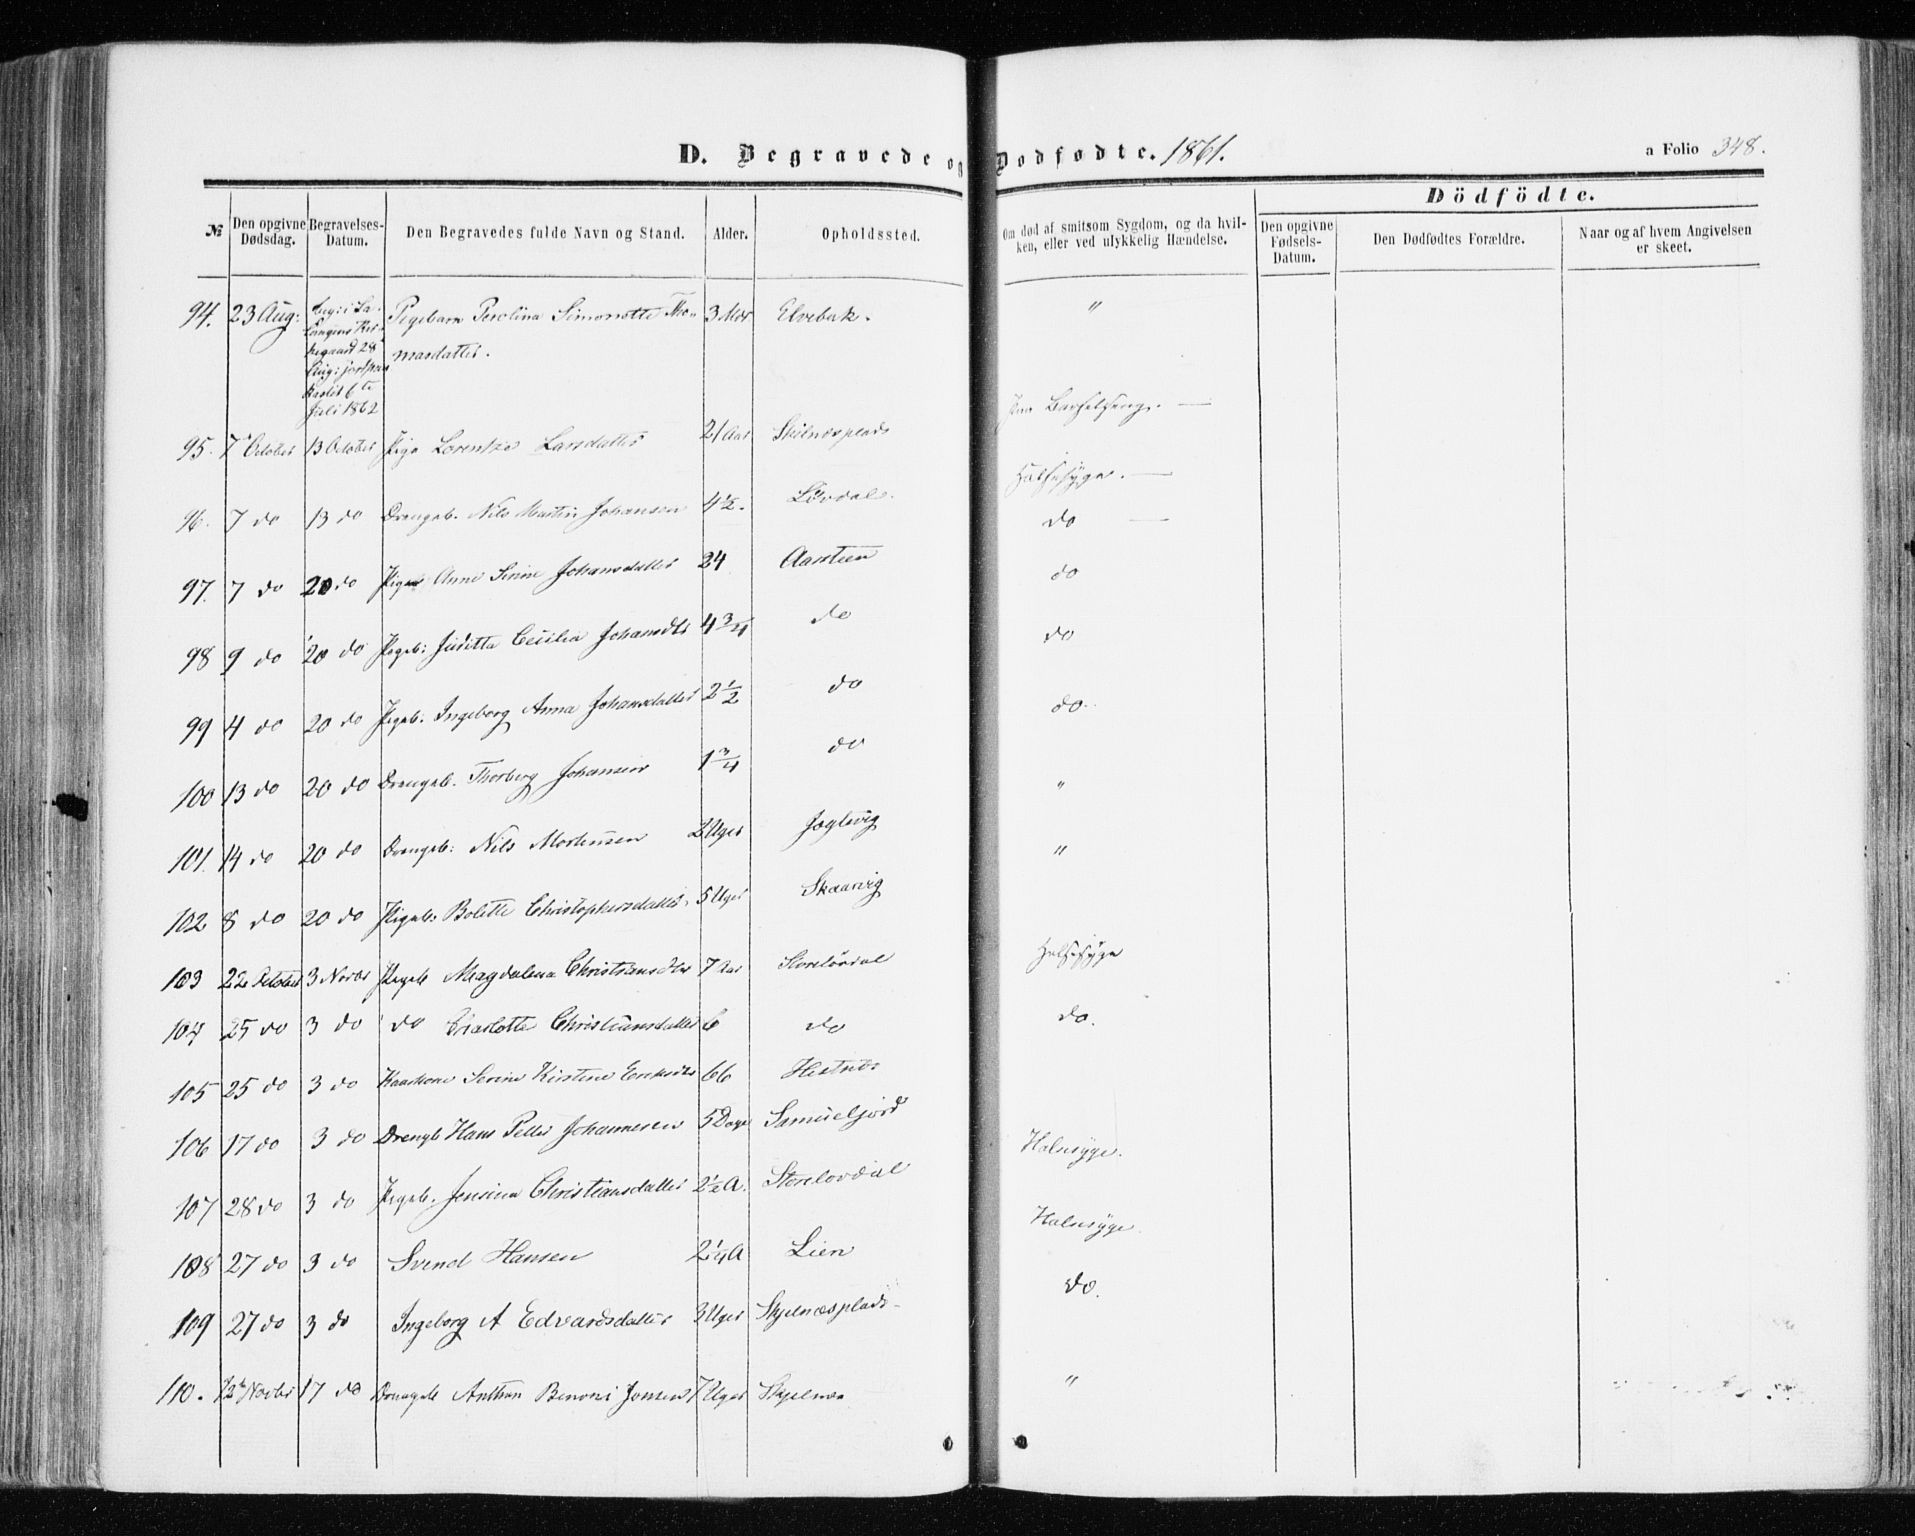 D. Begravede og Dødfødte. 1861.
a Folio 348.
№
Den opgivne Dødsdag.
Begravelses-Datum.
Den Begravedes fulde Navn og Stand.
Alder.
Opholdssted.
Om død af smitsom Sygdom, og da hvil-
ken, eller ved ulykkelig Hændelse.
Dödfödte.
Den opgivne Fødsels-Datum.
Den Dødfødtes Forældre.
Naar og af hvem Angivelsen er skeet.
94. 23 Aug: Pigebarn Simonette Tho- 3 Mdr Elvebak. "
masdatter.
28 Aug: 6te Juli 1862
95. 7 October 13 October Pige Lorentze Larsdatter 21 Aar Skilnesplads Paa Barselseng. —
96. 7 do 13 do Drengeb. Nils Martin Johansen 4 1/2. Lövdal. Halssyge. —
97. 7 do 20 do Pige Anne Serine Johansdatter 24 Aarsteen do —
98 9 do 20 do Pigeb: Juditta Cecilia Johansdtr 4 3/4 do do
99 4 do 20 do Pigeb: Ingeborg Anna Johansdatter 2 1/2 do do
100 13 do 20 do Drengeb. Thorberg Johansen 1 3/4 do do.
101. 14 do 20 do Drengeb: Nils Mortensen 2 Uger Jøglevig "
102 8 do 20 do Pigeb: Bolette Christophersdatter. 5 Uger Skaarvig "
103 22 October 3 Novbr Pigeb Magdalena Christiansdtr 7 Aar Storelövdal Halssyge
104 25 do 3 do do Charlotte Christiansdatter 6 do do.
105 25 do 3 do Kaarkone Serine Kirstine Eriksdtr 66 Hestnes
106 17 do 3 do Drengb Hans Petter Johannesen 5 Dage Samueljord
107 28 do 3 do Pigeb. Jensina Christiansdatter 2 1/2 A. Storelovdal Halssyge.
108 27 do 3 do Svend Hansen 2 1/4 A Lien Halssyge.
109 27 do 3 do Ingeborg A Edvardsdatter 3 Uger Skjelnesplads do.
110. 12 Novbr 17 do Drengeb Anthon Benoni Jonsen 7 Uger Skjelnes "